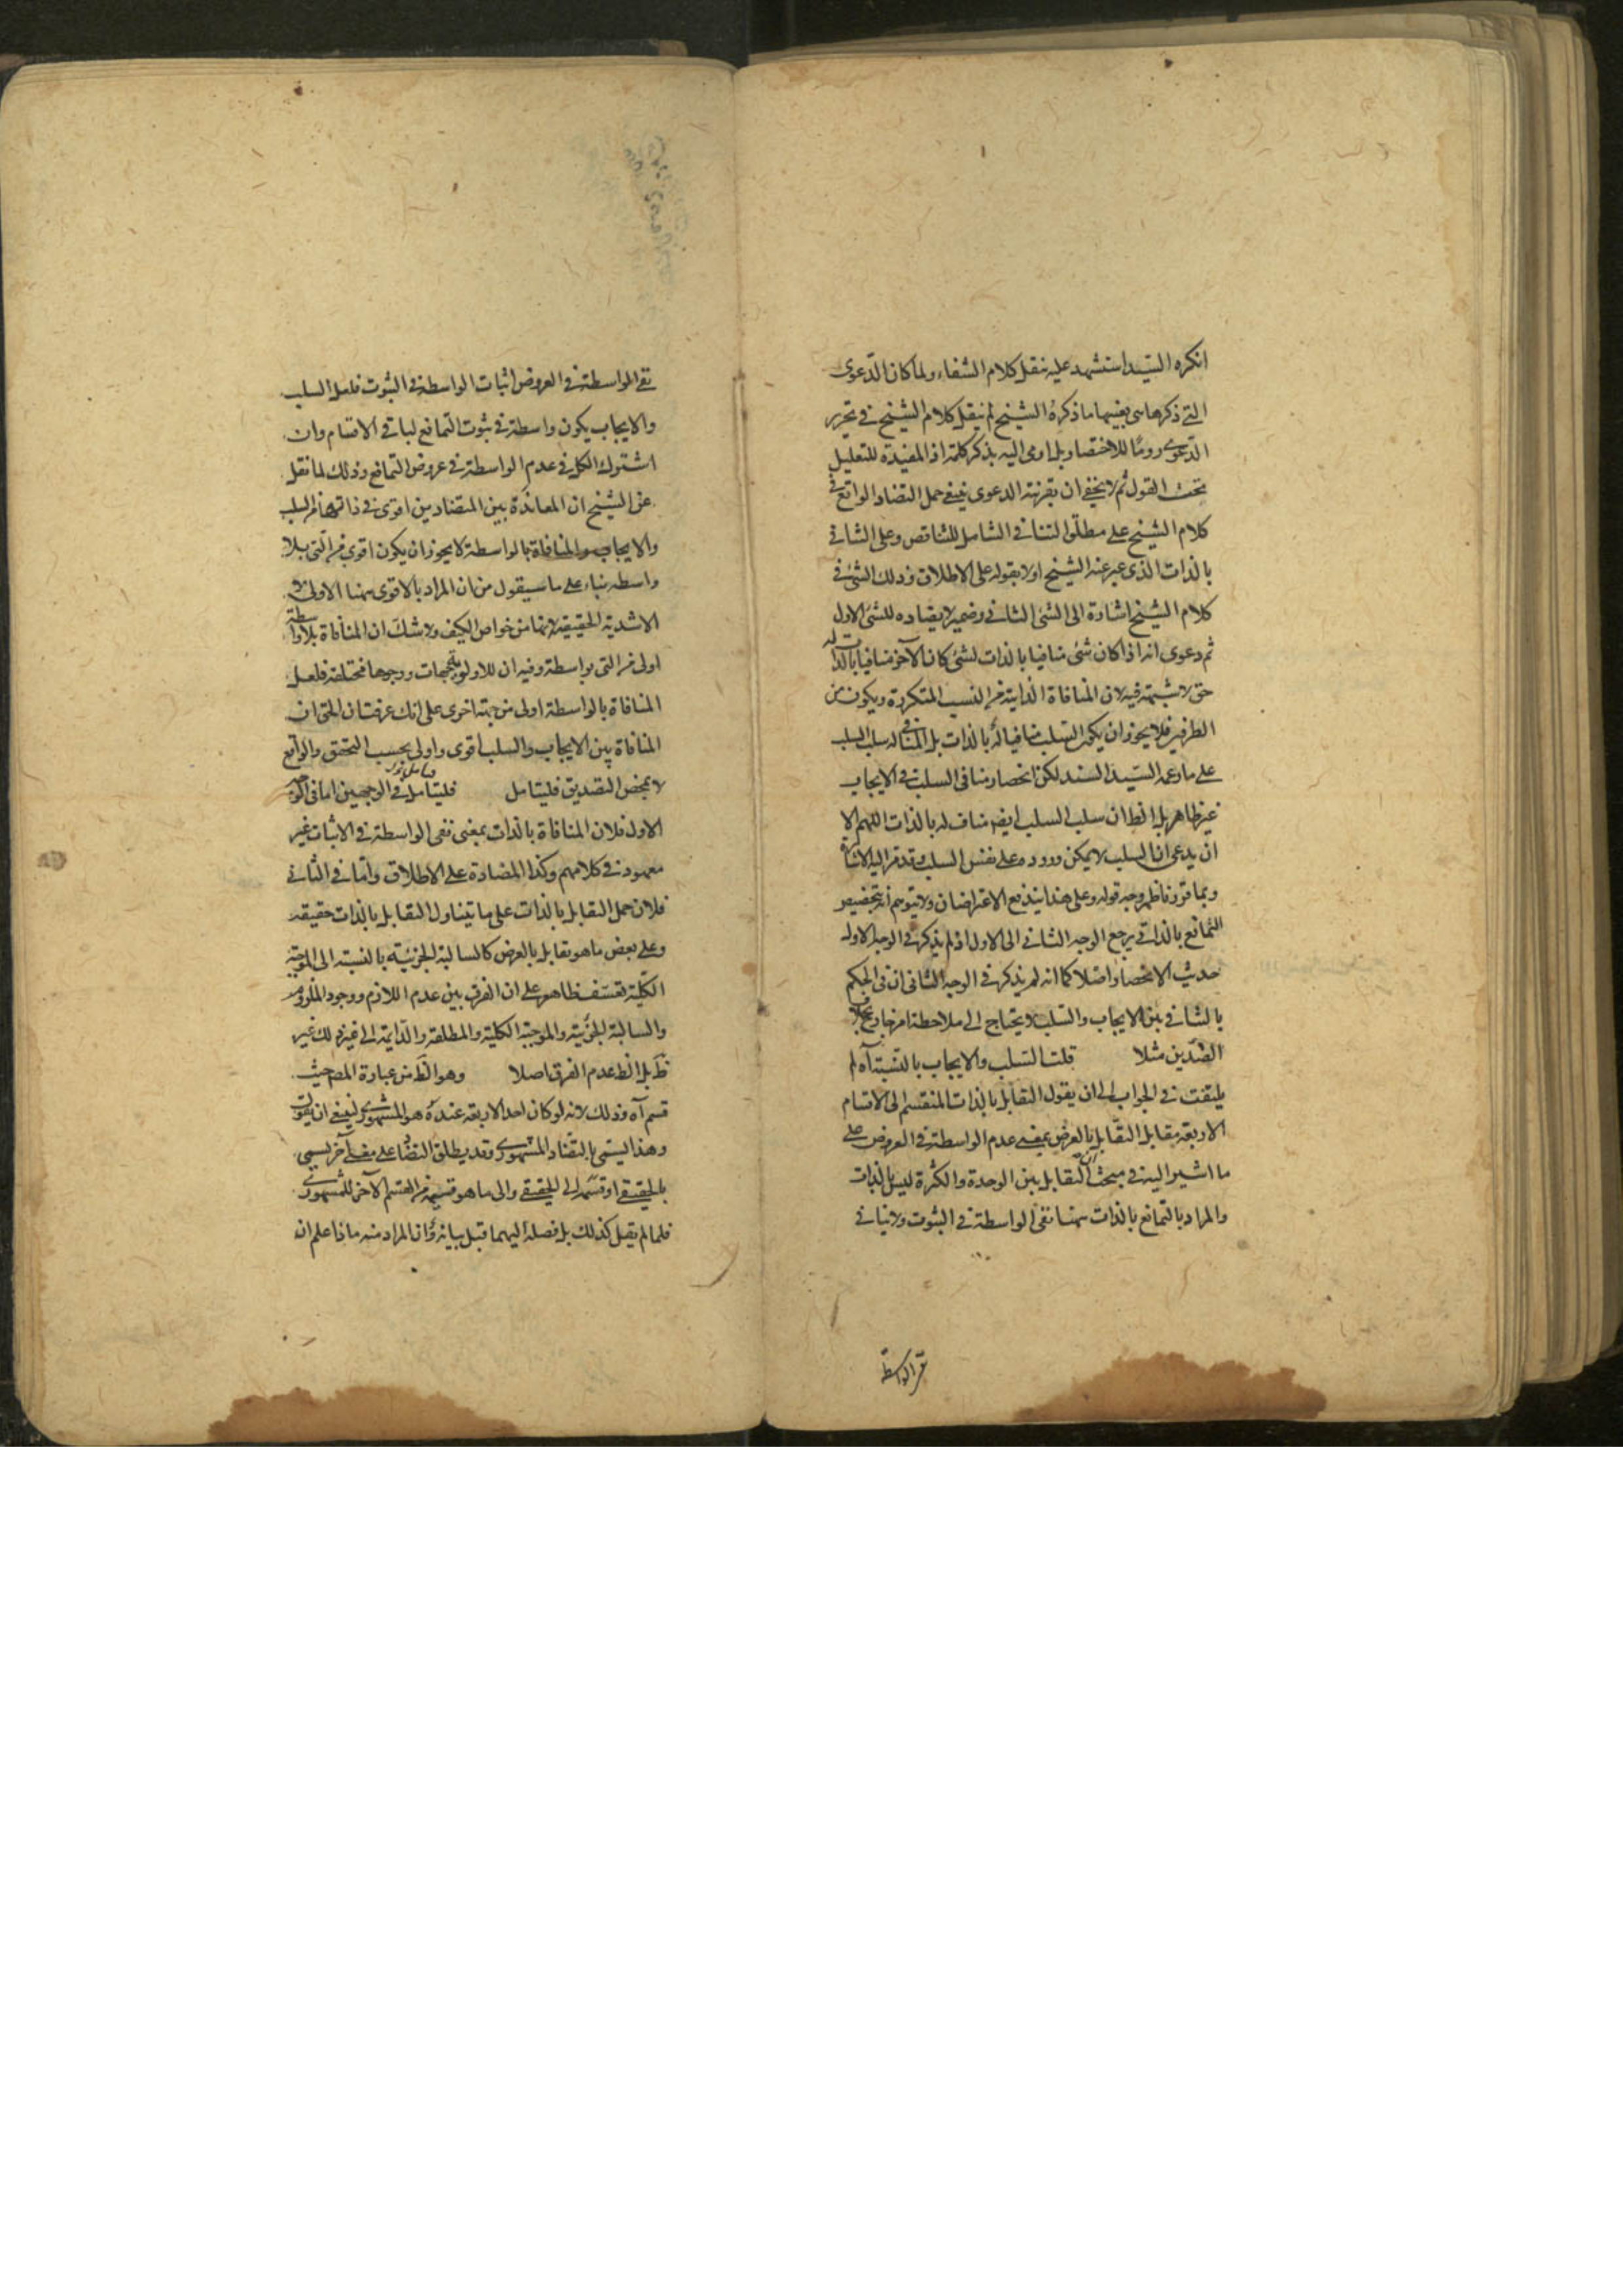 انكره السّيد استشهد عليه بنقل كلام الشفاء ولما كان الدّعوى
التي ذكرها هى بعينها ما ذكره الشيخ لم ينقل كلام الشيخ فى تحرير
الدعوى روما للاختصار بل اومى اليه بذكر كلمة اذ المفيدة للتعليل
تحت القول ثم لا يخفى ان بقرينة الدعوى ينبغى حمل التضاد الواقع فى
كلام الشيخ على مطلق التنافى الشامل للتناقض وعلى الثانى
بالذات الذى عبر عنه الشيخ اولا بقوله على الاطلاق وذلك الشئ فى
كلام الشيخ اشارة الى الشئ الثانى وضمير لا يضاده للشئ الاول
ثم دعوى انه اذا كان شئ منافيا بالذات لشئ كان الآخر منافيا بالذات له
حق لا شبهة فيه لان المنافاة الذاتية من النسب المتكررة ويكون من
الطرفين فلا يجوز ان يكون السلب منافيا له بالذات بل المنافى له سلب السلب
على ما زعمه السّيد السند لكن انحصار منافى السلب فى الايجاب
غير ظاهر بل الظ ان سلب السلب ايضا مناف له بالذات اللهم الا
ان يدعى ان السلب لا يمكن وروده على نفس السلب وقد مر اليه الاشارة
وبما قررنا ظهر وجه قوله وعلى هذا يندفع الاعتراضان ولا يتوهم انه بتخصيص
التمانع بالذاتى يرجع الوجه الثانى الى الاول اذ لم يذكر فى الوجه الاول
حديث الانحصار اصلا كما انه لم يذكر فى الوجه الثانى ان فى الحكم
بالتنافى بين الايجاب والسّلب لا يحتاج الى ملاحظة امر خارج بخلاف
الضّدين مثلا قلت السّلب والايجاب بالنسبة آه لم
يلتفت فى الجواب الى ان يقول التقابل بالذات المنقسم الى الاقسام
الاربعة مقابل التقابل بالعرض بمعنى عدم الواسطة فى العروض على
ما اشير اليه فى مبحث ان التقابل بين الوحدة والكثرة ليس بالذات
والمراد بالتمانع بالذات ههنا نفى الواسطة فى الثبوت ولا ينافى
نفى الواسطة
نفى الواسطة فى العروض اثبات الواسطة فى الثبوت فلعل السلب
والايجاب يكون واسطة فى ثبوت التمانع لباقى الاقسام وان
اشترك الكل فى عدم الواسطة فى عروض التمانع وذلك لما نقل
عن الشيخ ان المعاندة بين المتضادين اقوى فى ذاتها من السلب
والايجاب والمنافاة بالواسطة لا يجوز ان يكون اقوى من التى بلا
واسطه بناء على ما سيقول من ان المراد بالاقوى ههنا الاولى لا
الاشدية الحقيقة لانها من خواص الكيف ولا شك ان المنافاة بلا واسطة
اولى من التى بواسطة وفيه ان للاولوية جهات ووجوها مختلفة فلعل
المنافاة بالواسطة اولى من جهة اخرى على انك عرفت ان الحق ان
المنافاة بين الايجاب والسلب اقوى واولى بحسب التحقق والواقع
لا بمحض التصديق فليتامل فليتامل فى الوجهين اما فى الوجه
الاول فلان المنافاة بالذات بمعنى نفى الواسطة فى الاثبات غير
معهود فى كلامهم وكذا المضادة على الاطلاق وأما فى الثانى
فلان حمل التقابل بالذات على ما يتناول التقابل بالذات حقيقه
وعلى بعض ما هو تقابل بالعرض كالسالبة الجزئية بالنسبة الى الموجبة
الكلّية تعسّف ظاهر على ان الفرق بين عدم اللازم ووجود الملزوم
والسالبة الجزئية والموجبة الكلية والمطلقة والدّايمة الى غير ذلك غير
ظ بل الظ عدم الفرق اصلا وهو الظ من عبارة المص حيث
قسم آه وذلك لانه لو كان احد الاربعة عنده هو المشهورى لينبغى ان يقول
وهذا يسمى بالتضاد المشهورى وقد يطلق التضاد على معنى آخر يسمى
بالحقيقى او قسّمه الى الحقيقى والى ما هو قسيمه من القسم الآخر للمشهورى
فلما لم يقل كذلك بل فصله اليهما قبل بيانه وان المراد منه ماذا علم ان